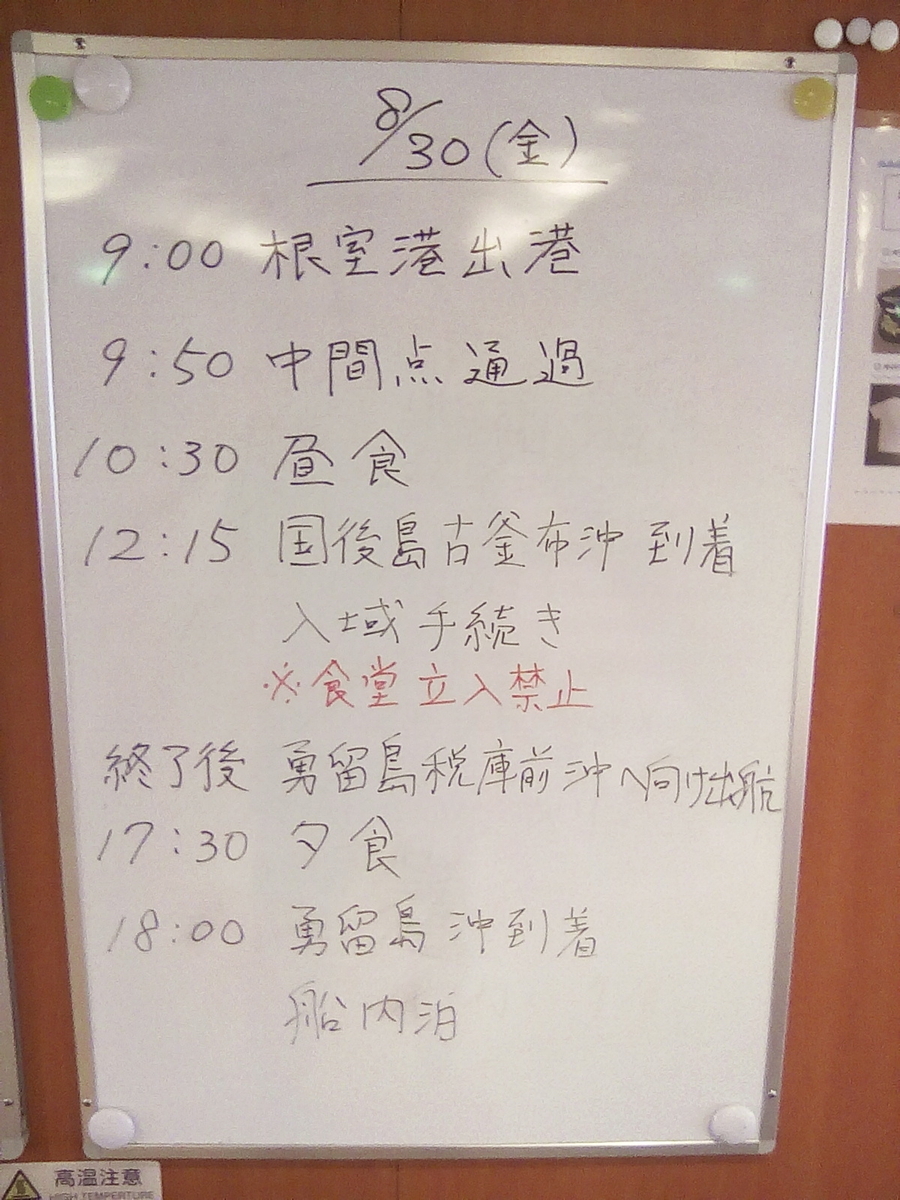 8/30(金)
9:00 根室港出港
9:50 中間点通過
10:30 昼食
12:15 国後島古釜布沖 到着
入域手続き
※食堂立入禁止
終了後 勇留島税庫前沖へ向け出航
17:30 夕食
18:00 勇留島沖到着
船内泊
高温注意
HIGH TEMPERTURE